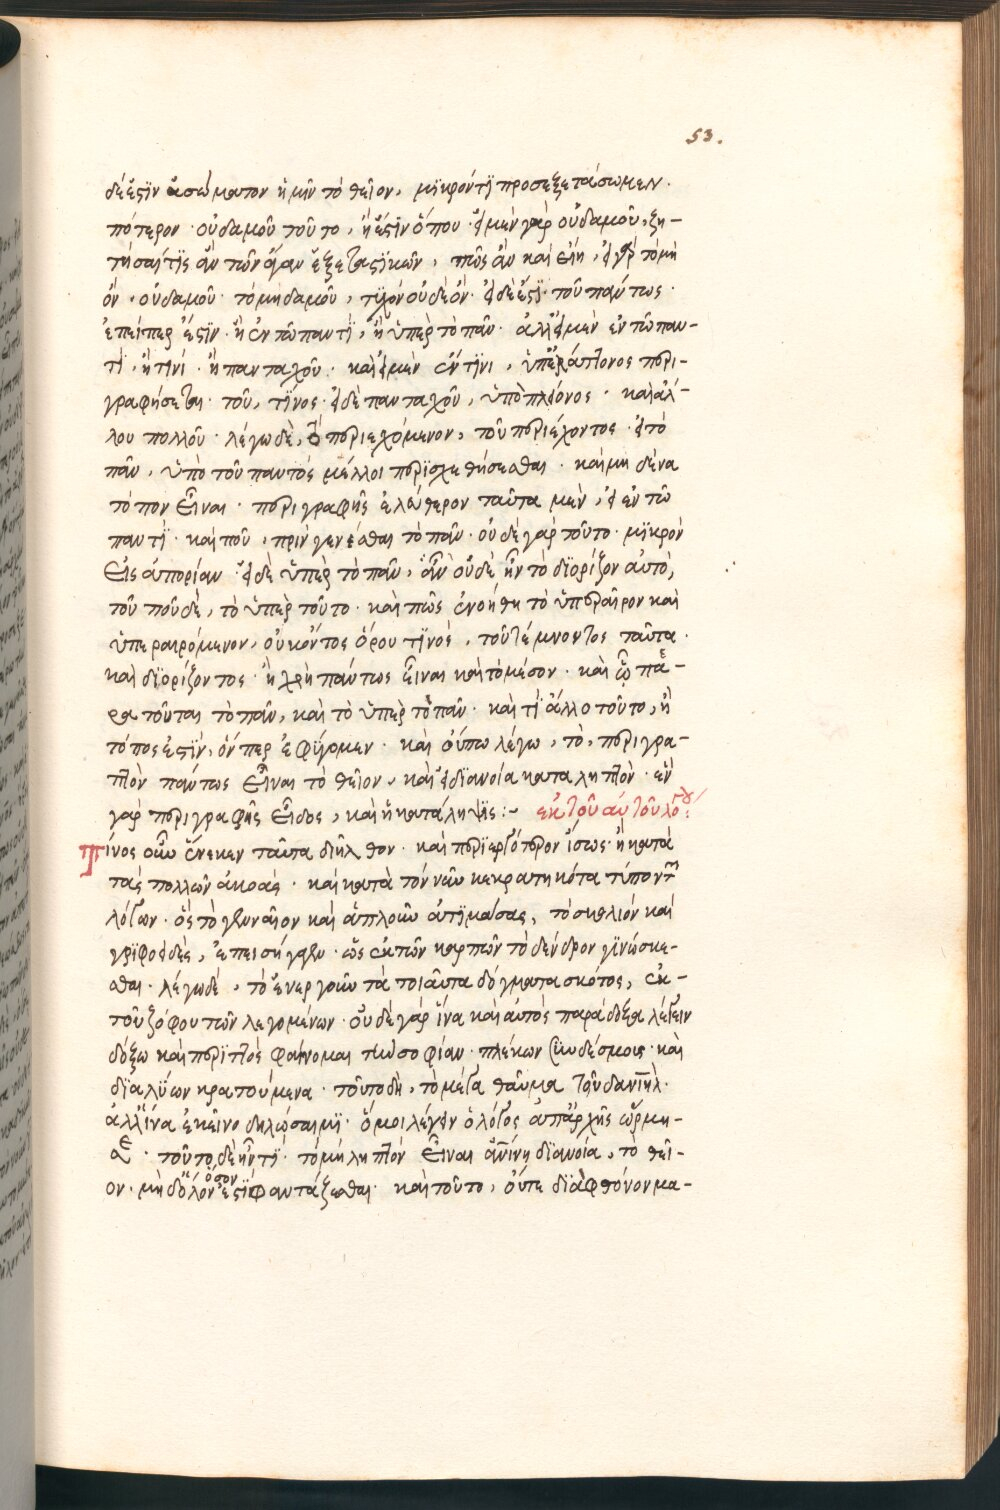 53.
δέ ἐστιν ἀσώματον ἡμῖν τὸ θεῖον, μικρόν τι προσεξετάσωμεν.
πότερον οὐδαμοῦ τοῦτο, ἢ ἔστιν ὅπου· εἰ μὲν γὰρ οὐδαμοῦ, ζη-
τήσαι τίς ἂν τῶν ἄγαν ἐξεταστικῶν, πῶς ἂν καὶ εἴη, εἰ γὰρ τὸ μὴ
ὄν, οὐδαμοῦ· τὸ μηδαμοῦ, τυχὸν οὐδὲ ὄν· εἰ δέ ἐστί που πάντως·
ἐπείπερ ἔστιν· ἢ ἐν τῷ παντὶ, ἢ ὑπὲρ τὸ πᾶν· ἀλλ' εἰ μὲν ἐν τῷ παν-
τὶ, ἤ τινι· ἢ πανταχοῦ· καὶ εἰ μὲν ἔν τινι, ὑπ' ἐλάττονος περι-
γραφήσεται τοῦ, τινός· εἰ δὲ πανταχοῦ, ὑπὸ πλείονος· καὶ ἄλ-
λου πολλοῦ· λέγω δὲ, τὸ περιεχόμενον, τοῦ περιέχοντος· εἰ τὸ
πᾶν, ὑπὸ τοῦ παντὸς μέλλοι περισχεθήσεσθαι· καὶ μηδένα
τόπον εἶναι· περιγραφῆς ἐλεύθερον ταῦτα μὲν, εἰ ἐν τῷ
παντί· καὶ ποῦ, πρὶν γενέσθαι τὸ πᾶν· οὐδὲ γὰρ τοῦτο μικρὸν
εἰς ἀπορίαν· εἰ δὲ ὑπὲρ τὸ πᾶν, ἆρ' οὐδὲ ἦν τὸ διορίζον αὐτὸ,
τοῦ ποῦ δὲ, τὸ ὑπὲρ τοῦτο· καὶ πῶς ἐνοήθη τὸ ὑπεραῖρον καὶ
ὑπεραιρόμενον, οὐκ ὄντος ὅρου τινὸς, τοῦ τέμνοντος ταῦτα·
καὶ διορίζοντος· ἢ χρὴ πάντως εἶναι καὶ τὸ μέσον· καὶ ᾧ πε-
ρατοῦται τὸ πᾶν, καὶ τὸ ὑπὲρ τὸ πᾶν· καὶ τί ἄλλο τοῦτο, ἢ
τόπος ἐστὶν, ὅνπερ ἐφύγομεν· καὶ οὔπω λέγω, τὸ, περιγρα-
πτὸν πάντως εἶναι τὸ θεῖον, καὶ εἰ διανοία καταληπτόν· ἓν
γὰρ περιγραφῆς εἶδος, καὶ ἡ κατάληψις:- ἐκ τοῦ αὐτοῦ λόγου:
Τίνος οὖν ἕνεκεν ταῦτα διῆλθον· καὶ περιεργότερον ἴσως ἢ κατὰ
τὰς πολλῶν ἀκοάς· καὶ κατὰ τὸν νῦν κεκρατηκότα τύπον τῶν
λόγων· ὃς τὸ γενναῖον καὶ ἁπλοῦν ἀτιμάσας, τὸ σκολιὸν καὶ
γριφοειδὲς, ἐπεισήγαγεν· ὡς ἐκ τῶν καρπῶν τὸ δένδρον γινώσκε-
σθαι· λέγω δὲ, τὸ ἐνεργοῦν τὰ τοιαῦτα δόγματα σκότος, ἐκ
τοῦ ζόφου τῶν λεγομένων· οὐδὲ γὰρ ἵνα καὶ αὐτὸς παράδοξα λέγειν
δόξω καὶ περιττὸς φαίνωμαι τὴν σοφίαν· πλέκων συνδέσμους· καὶ
διαλύων κρατούμενα· τοῦτο δὴ, τὸ μέγα θαῦμα τοῦ δανιήλ·
ἀλλ' ἵνα ἐκεῖνο δηλώσαιμι· ὅ μοι λέγειν ὁ λόγος ἀπ' ἀρχῆς ὥρμη-
σε· τοῦτο δὲ ἦν τί· τὸ μὴ ληπτὸν εἶναι ἀνθρωπίνῃ διανοίᾳ, τὸ θεῖ-
ον· μηδ' ὅλον ὅσον ἐστὶ φαντάζεσθαι· καὶ τοῦτο, οὔτε διὰ φθόνον μα-